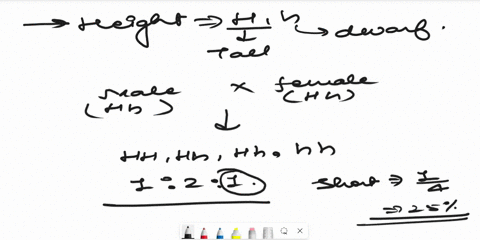 → Height ⇒ H, h → dwarf.
↓
Tall
Male × female
(Hh) (Hh)
↓
HH, Hh, Hh, hh
1 : 2 : 1.
Short ⇒ 1/4
⇒ 25%